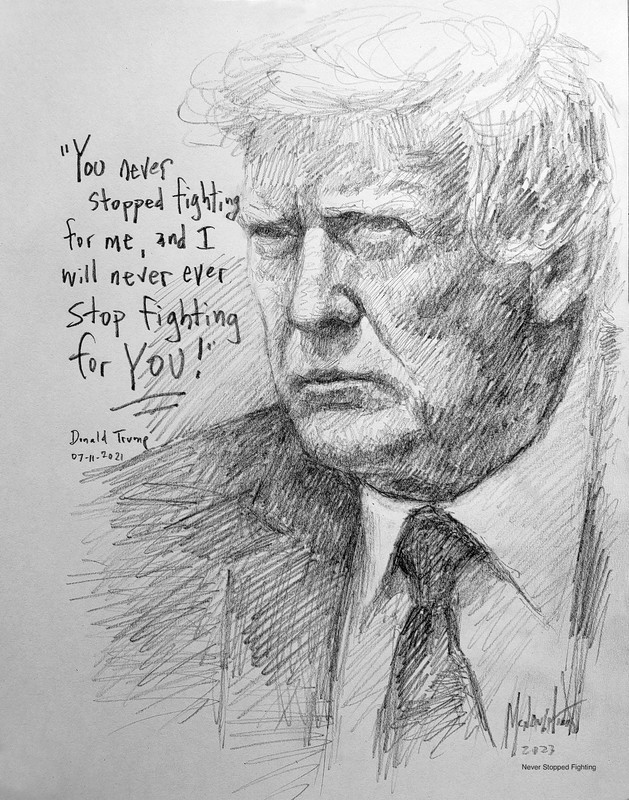 "You never
stopped fighting
for me, and I
will never ever
stop fighting
for YOU!"
Donald Trump
07-11-2021
2023
Never Stopped Fighting